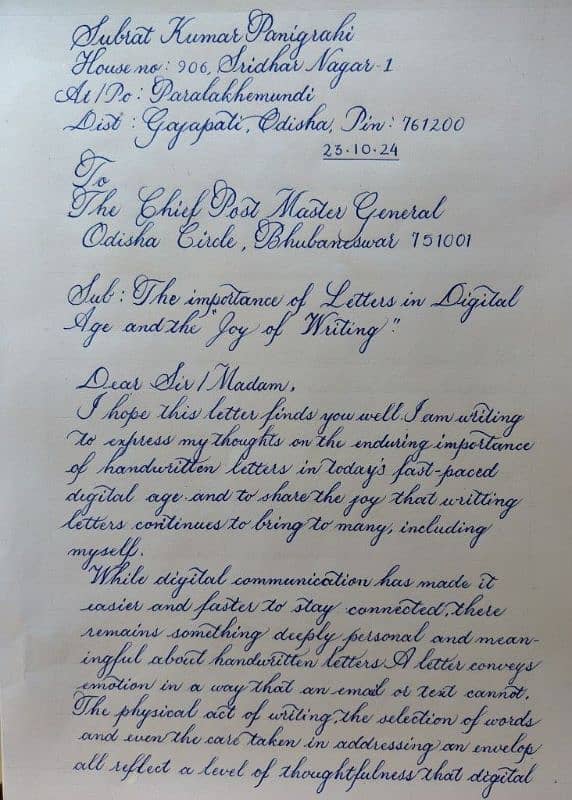 Subrat Kumar Panigrahi
House no: 906, Sridhar Nagar-1
At/Po: Paralakhemundi
Dist: Gajapati, Odisha, Pin: 761200
23.10.24
To
The Chief Post Master General
Odisha Circle, Bhubaneswar 751001
Sub: The importance of Letters in Digital
Age and the "Joy of Writing"
Dear Sir/Madam,
I hope this letter finds you well. I am writing
to express my thoughts on the enduring importance
of handwritten letters in today's fast-paced
digital age and to share the joy that writting
letters continues to bring to many, including
myself.
While digital communication has made it
easier and faster to stay connected, there
remains something deeply personal and mean-
ingful about handwritten letters A letter conveys
emotion in a way that an email or text cannot.
The physical act of writing, the selection of words
and even the care taken in addressing an envelop
all reflect a level of thoughtfulness that digital